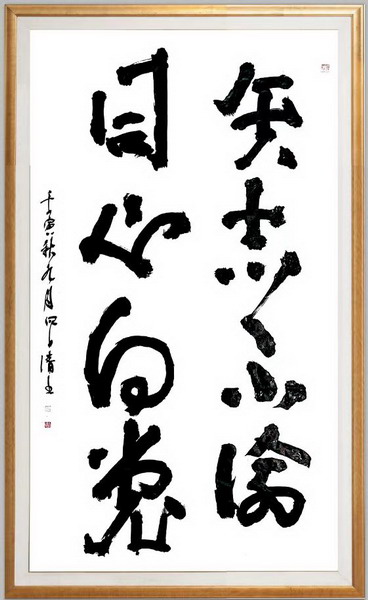 矢志不渝
同心向党
壬寅秋九月